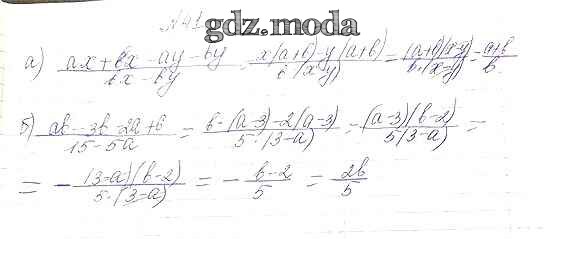 №41
gdz.moda
а) (ax + bx - ay - by)/(bx - by) = (x(a+b) - y(a+b))/(b(x-y)) = ((a+b)(x-y))/(b·(x-y)) = (a+b)/b
б) (ab - 3b - 2a + 6)/(15 - 5a) = (b·(a-3) - 2(a-3))/(5·(3-a)) = ((a-3)(b-2))/(5(3-a)) =
= - ((3-a)(b-2))/(5·(3-a)) = - (b-2)/5 = (2b)/5